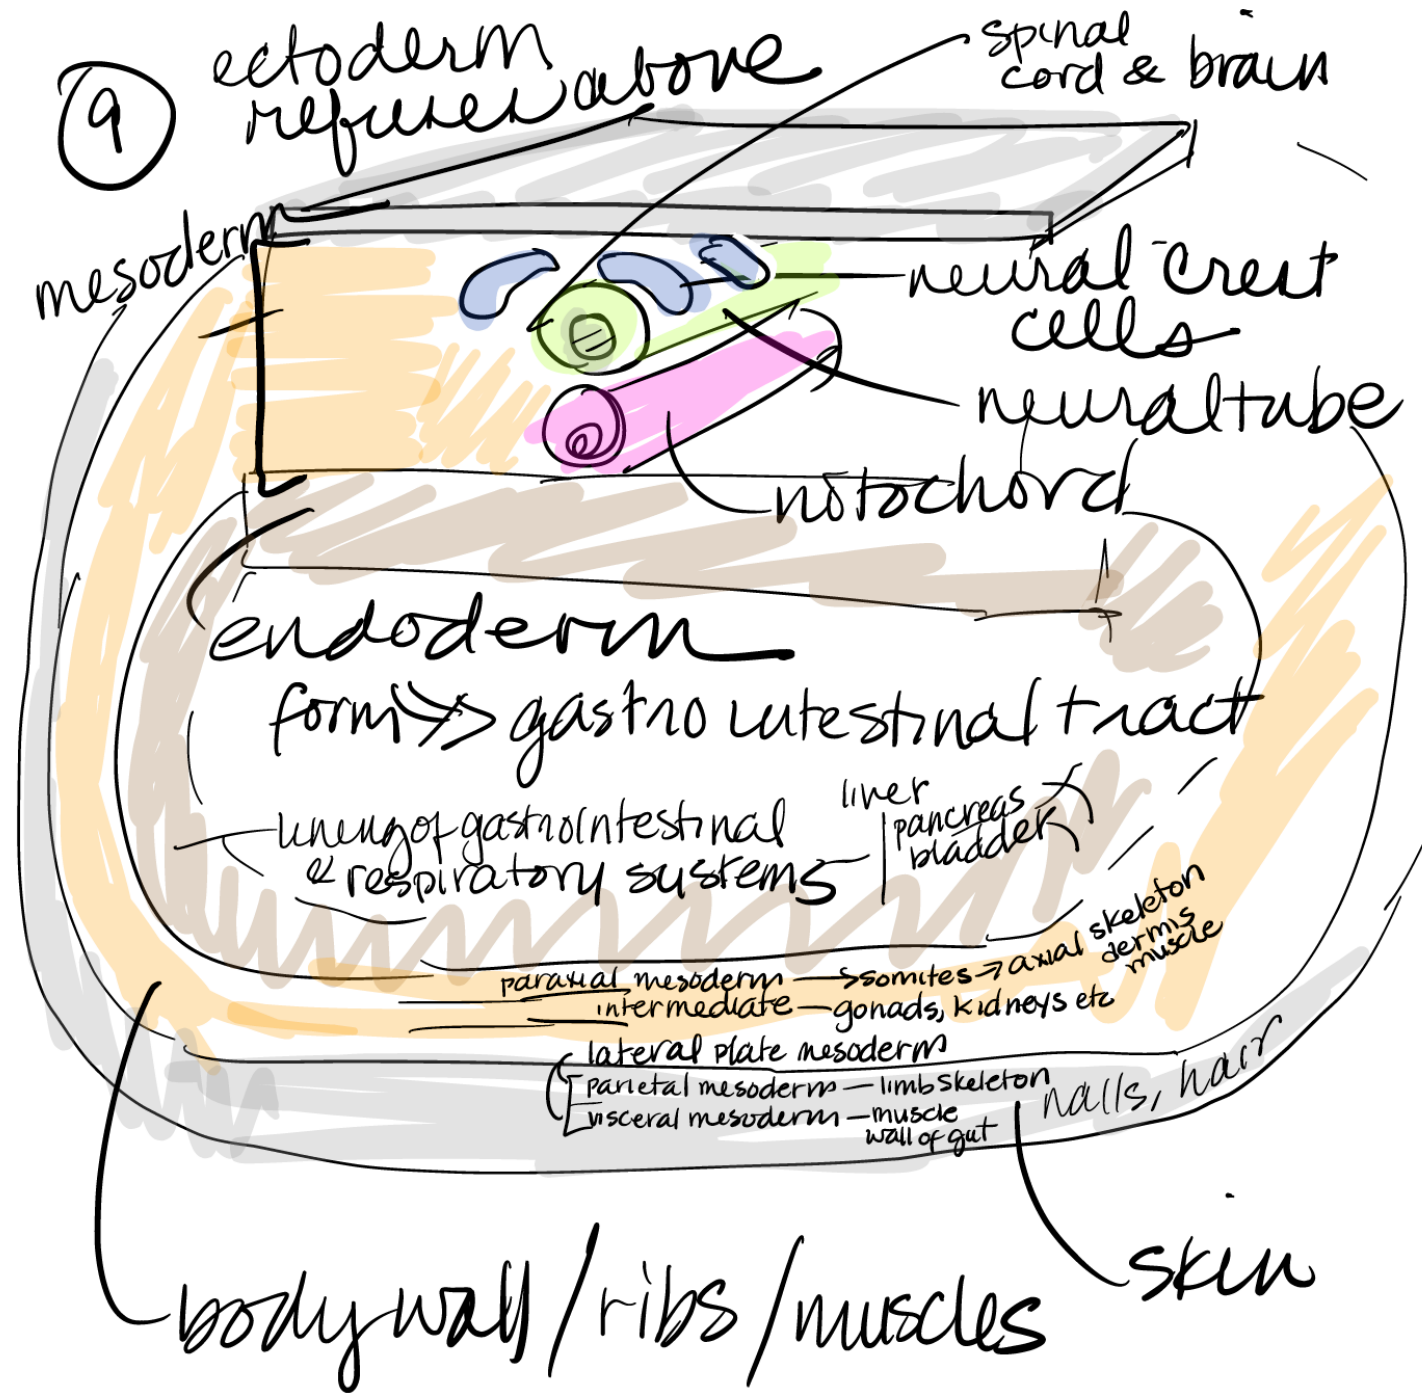 9
ectoderm
refuses above
spinal
cord & brain
mesoderm
neural crest
cells
neural tube
notochord
endoderm
form >> gastrointestinal tract
lining of gastrointestinal
& respiratory systems
liver
pancreas
bladder
paraxial mesoderm → somites → axial skeleton
dermis
muscle
intermediate — gonads, kidneys etc
lateral plate mesoderm
parietal mesoderm — limb skeleton
visceral mesoderm — muscle
wall of gut
nails, hair
skin
body wall / ribs / muscles